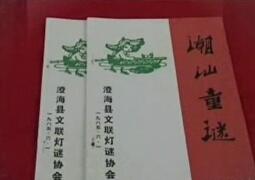 潮汕童谜
澄海县文联灯谜协会
一九八五·六·一
澄海县文联灯谜协会
一九八五·六·